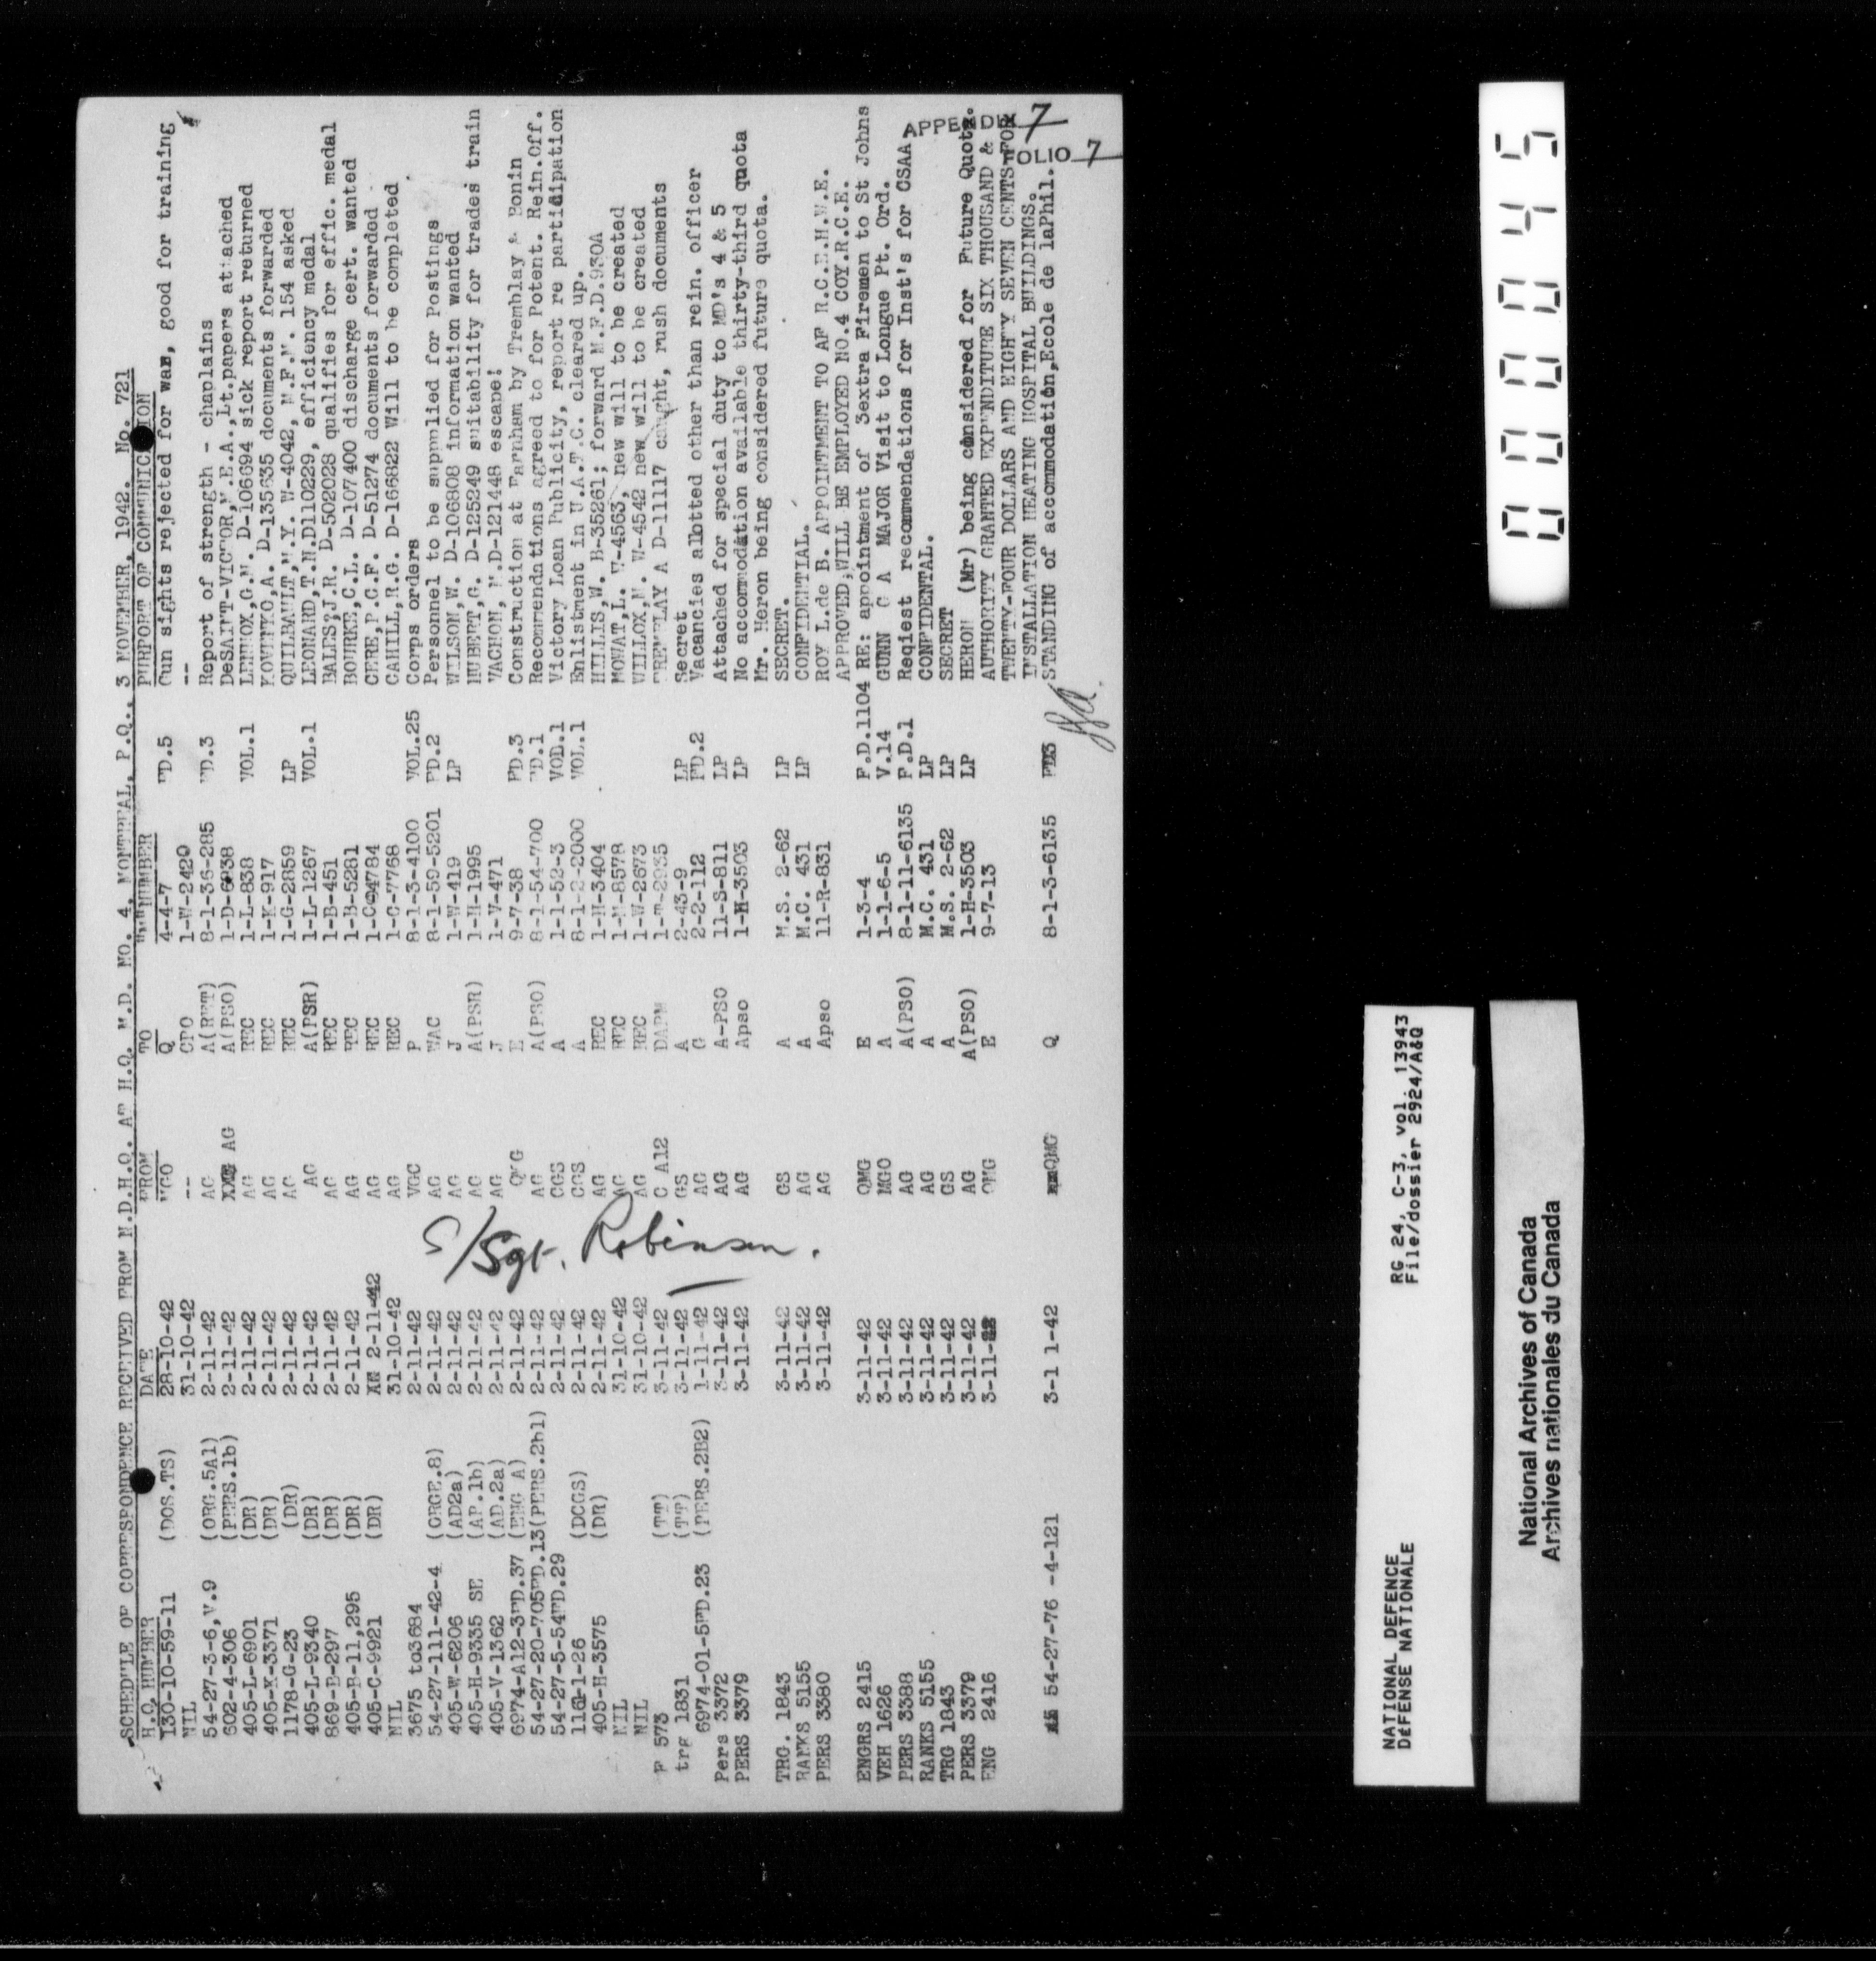 SCHEDULE OF CORRESPONDENCE RECEIVED FROM N.D.H.Q. AT H.Q. M.D. NO. 4, MONTREAL, P.Q., 3 NOVEMBER, 1942. No. 721
H.Q. NUMBER DATE FROM TO "M" NUMBER PURPORT OF COMMUNIC ION
130-10-59-11 (DOS.TS) 28-10-42 MGO Q 4-4-7 FD.5 Gun sights rejected for war, good for training
NIL 31-10-42 -- CPO 1-W-2420 --
54-27-3-6,V.9 (ORG.5A1) 2-11-42 AG A(RET) 8-1-36-285 FD.3 Report of strength - chaplains
602-4-306 (PERS.1b) 2-11-42 AG A(PSO) 1-D-6938 DeSAINT-VICTOR,M.E.A.,Lt.papers attached
405-L-6901 (DR) 2-11-42 AG REC 1-L-838 VOL.1 LENNOX,G.M. D-106694 sick report returned
405-K-3371 (DR) 2-11-42 AG REC 1-K-917 KOVINKO,A. D-135635 documents forwarded
1178-G-23 (DR) 2-11-42 AG REC 1-G-2859 LP QUILBAULT,M.Y. W-4042, M.F.M. 154 asked
405-L-9340 (DR) 2-11-42 AG A(PSR) 1-L-1267 VOL.1 LEONARD,T.N.D110229, efficiency medal
869-B-297 (DR) 2-11-42 AG REC 1-B-451 BALES,J.R. D-502028 qualifies for effic. medal
405-B-11,295 (DR) 2-11-42 AG REC 1-B-5281 BOURKE,C.L. D-107400 discharge cert. wanted
405-C-9921 (DR) 2-11-42 AG REC 1-C-4784 CERE,P.C.F. D-51274 documents forwarded
NIL 31-10-42 AG REC 1-C-7768 CAHILL,R.G. D-166822 Will to be completed
3675 to3684 2-11-42 VGC P 8-1-3-4100 VOL.25 Corps orders
54-27-111-42-4 (ORGE.8) 2-11-42 AG WAC 8-1-59-5201 FD.2 Personnel to be supplied for Postings
405-W-6206 (AD2a) 2-11-42 AG J 1-W-419 LP WILSON,W. D-106808 information wanted
405-H-9335 SE (AP.1b) 2-11-42 AG A(PSR) 1-H-1995 HUBERT,G. D-125249 suitability for trades train
405-V-1362 (AD.2a) 2-11-42 AG J 1-V-471 VACHON, M.D-121448 escape!
6974-A12-3FD.37 (ENG A) 2-11-42 QMG E 9-7-38 FD.3 Construction at Farnham by Tremblay & Bonin
54-27-20-705FD.13(PERS.2h1) 2-11-42 AG A(PSO) 8-1-54-700 FD.1 Recommendations agreed to for Potent. Rein.Off.
54-27-5-54FD.29 2-11-42 CGS A 1-1-52-3 VOD.1 Victory Loan Publicity, report re participation
1161-1-26 (DCGS) 2-11-42 CGS A 8-1-2-2000 VOL.1 Enlistment in U.A.T.C. cleared up.
405-H-3575 (DR) 2-11-42 AG REC 1-H-3404 HILLIS,W. B-35261; forward M.F.D.930A
NIL 31-10-42 AG REC 1-M-8578 MOWAT,L. W-4563, new will to be created
NIL 31-10-42 AG REC 1-W-2673 WILLOX,M. W-4542 new will to be created
F 573 (TT) 3-11-42 C A12 DAPM 1-T-2935 TREMPLAY A D-11117 caught, rush documents
trg 1831 (TT) 3-11-42 GS A 2-43-9 LP Secret
6974-01-5FD.23 (PERS.2B2) 1-11-42 AG G 2-2-112 FD.2 Vacancies allotted other than rein. officer
Pers 3372 3-11-42 AG A-PSO 11-S-811 LP Attached for special duty to MD's 4 & 5
PERS 3379 3-11-42 AG Apso 1-H-3503 LP No accommodation available thirty-third quota
Mr. Heron being considered future quota.
TRG. 1843 3-11-42 GS A M.S. 2-62 LP SECRET.
RANKS 5155 3-11-42 AG A M.C. 431 LP CONFIDENTIAL.
PERS 3380 3-11-42 AG Apso 11-R-831 ROY L.de B. APPOINTMENT TO AF R.C.E.M.E.
APPROVED,WILL BE EMPLOYED NO.4 COY.R.C.E.
ENGRS 2415 3-11-42 QMG E 1-3-4 F.D.1104 RE: apointment of 3extra Firemen to St Johns
VEH 1626 3-11-42 MGO A 1-1-6-5 V.14 GUNN G A MAJOR Visit to Longue Pt. Ord.
PERS 3388 3-11-42 AG A(PSO) 8-1-11-6135 F.D.1 Reqiest recommendations for Inst's for CSAA
RANKS 5155 3-11-42 AG A M.C. 431 LP CONFIDENTAL.
TRG 1843 3-11-42 GS A M.S. 2-62 LP SECRET
PERS 3379 3-11-42 AG A(PSO) 1-H-3503 LP HERON (Mr) being considered for Future Quota.
ENG 2416 3-11-42 QMG E 9-7-13 AUTHORITY GRANTED EXPENDITURE SIX THOUSAND &
TWENTY-FOUR DOLLARS AND EIGHTY SEVEN CENTS FOR
INSTALLATION HEATING HOSPITAL BUILDINGS.
54-27-76 -4-121 3-1 1-42 QMG Q 8-1-3-6135 FD3 STANDING of accommodation,Ecole de laPhil.
S/Sgt. Robinson.
APPENDIX 7
FOLIO 7
NATIONAL DEFENCE RG 24, C-3, vol. 13943
DéFENSE NATIONALE File/dossier 2924/A&Q
National Archives of Canada
Archives nationales du Canada
000045